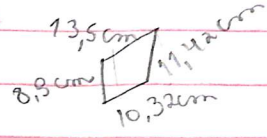 13,5cm
11,42cm
8,9cm
10,32cm